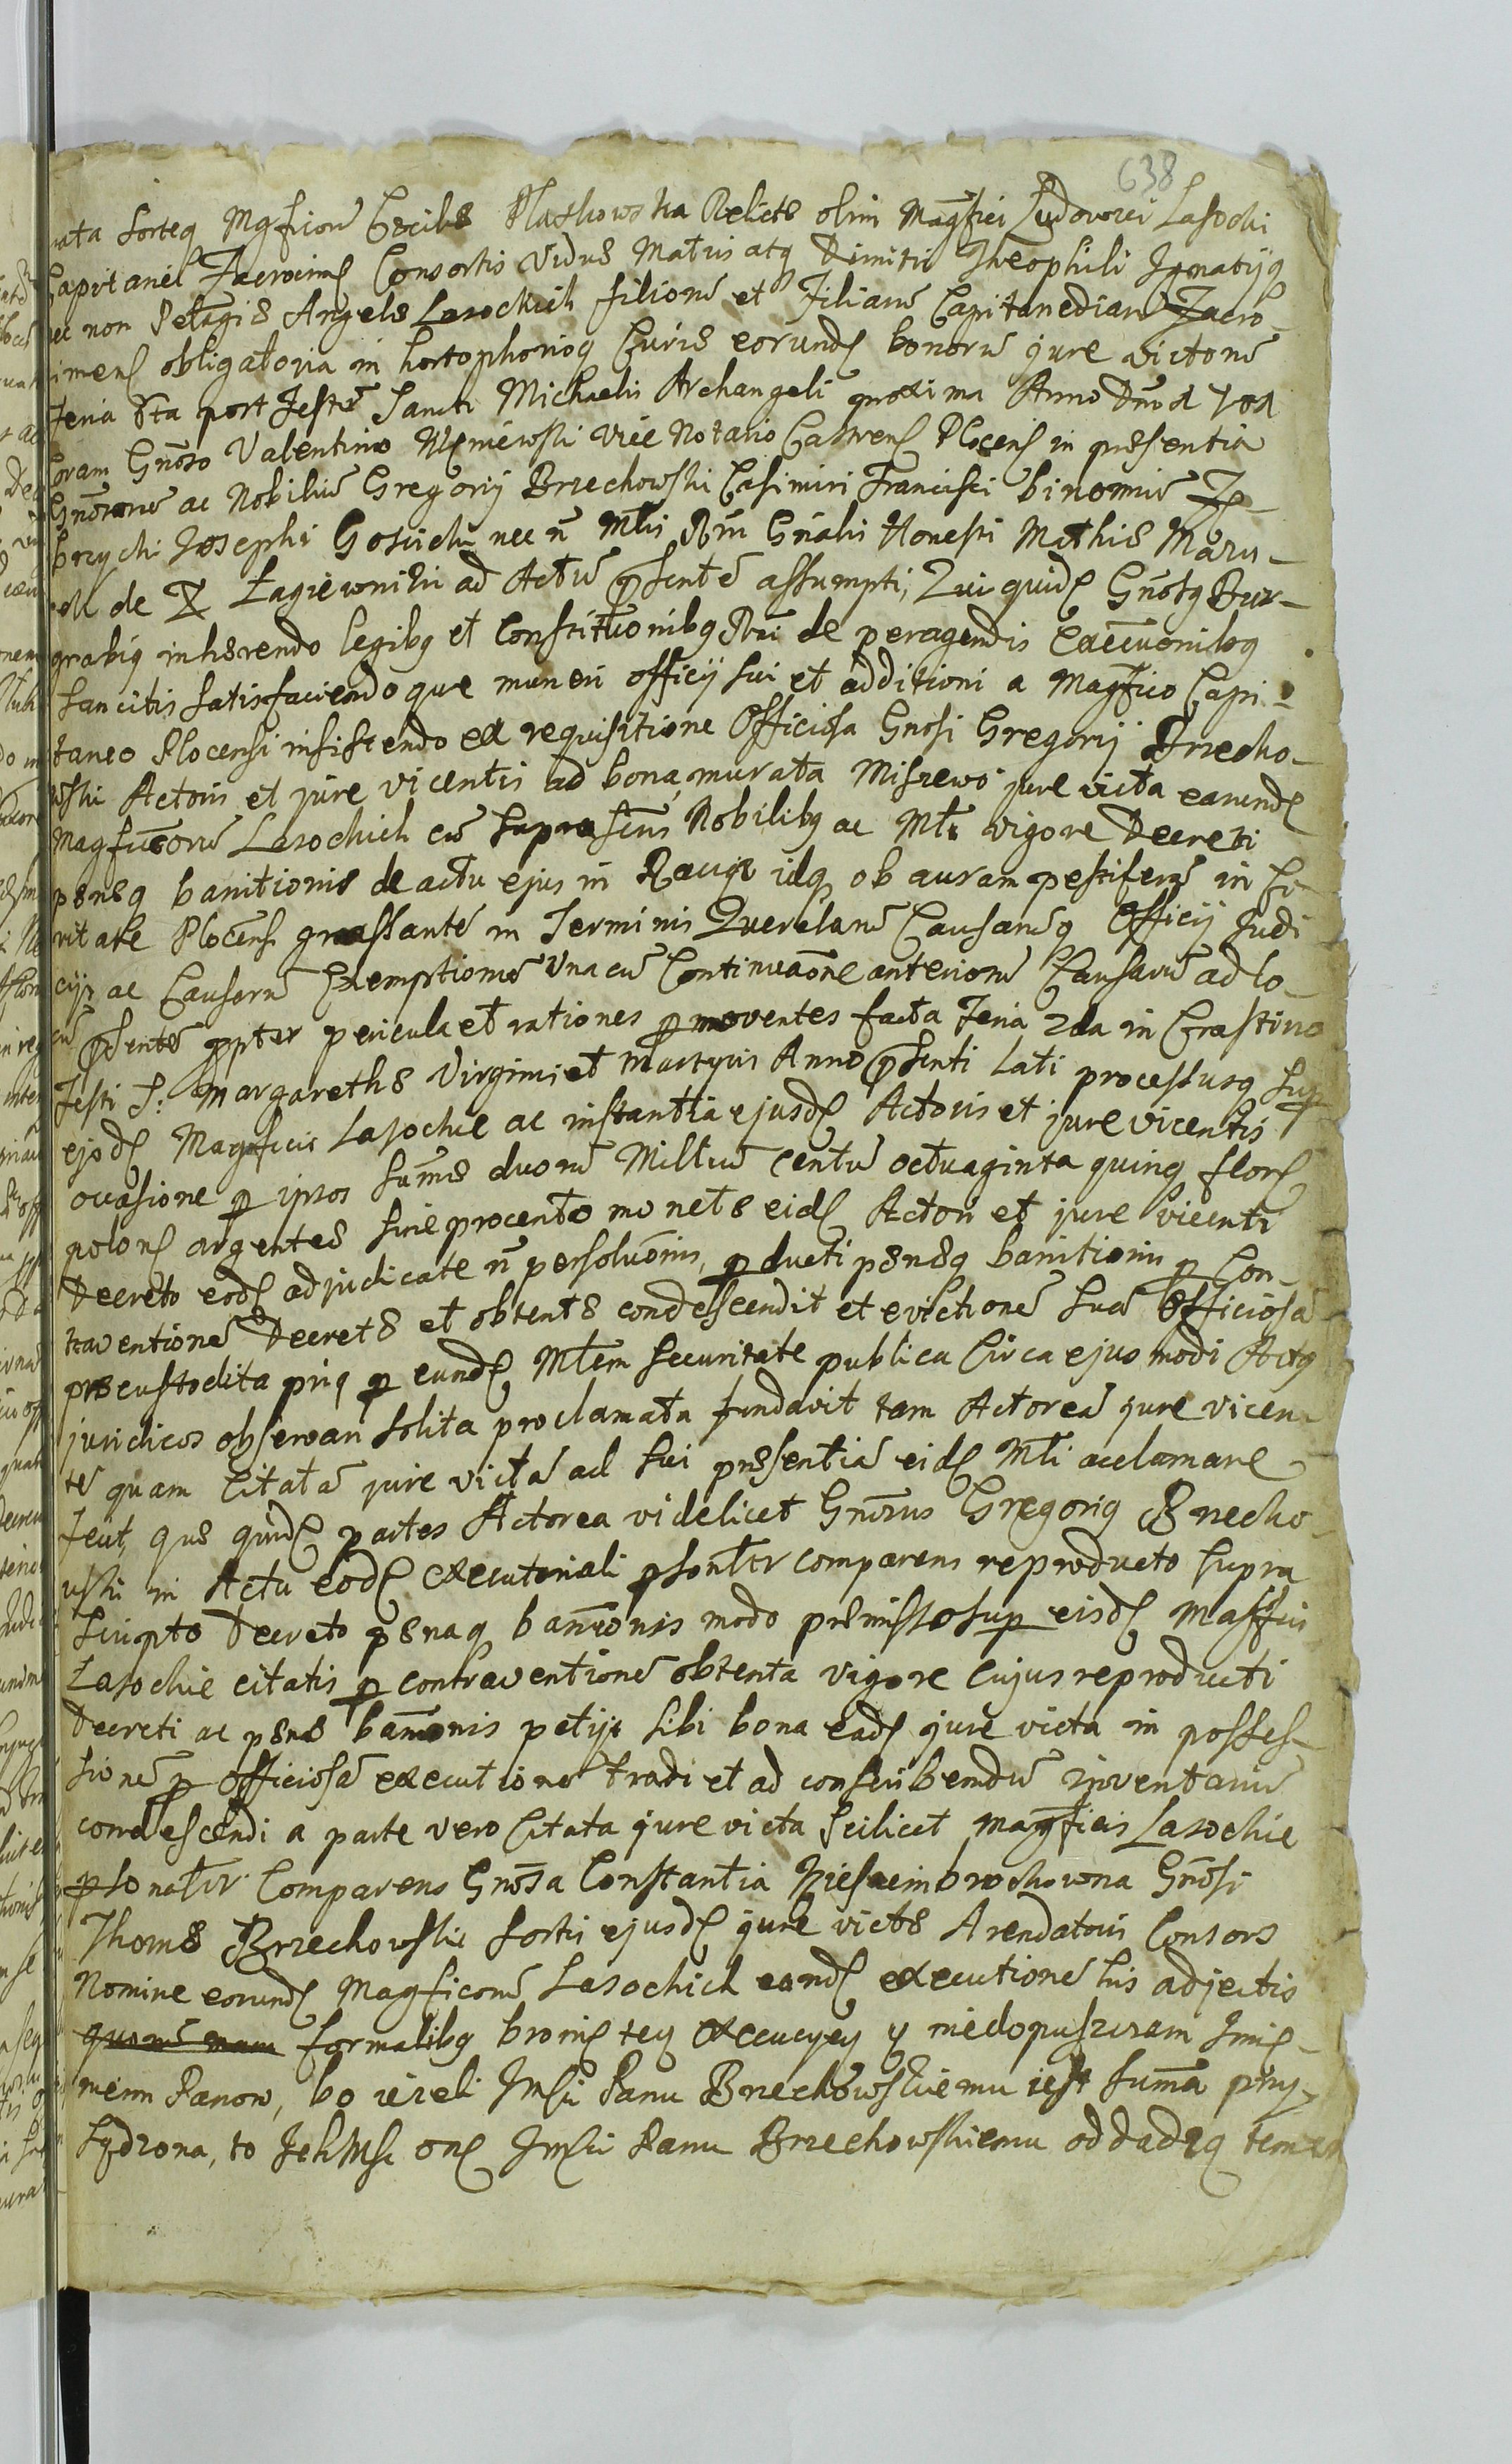 638
sorteq Mgficorū Cæcilæ Plaskowska Relictæ olim Magfici Ludovici Lasocki
Capitanei Zacrocimen Consortis viduæ Matris atq Dimitri Theophili Ignatijq
nec non Pelagiæ Angelæ Lasockich filiorū et filiarū Capitanediarū Zacro-
imen obligatoria in hortophorioq Curiæ eorund bonorū jure victorū
feria 6ta post Festū Sancti Michaelis Archangeli proxima Anno Dni 1701
Coram Gnoso Valentino vice Notario Castren Plocen in præsentia
Gnosorū ac Nobiliū Gregorij Brzechowski Casimiri Francisci binomiū Ze-
brzychi Josephi Gosicki nec n Mlis Rni Gnalis Honesti Mathiæ Mazu-
rek de Łagiewniki ad Actū psentē assumpti, Qui quid Gnosq Bur-
grabiq inhærendo legibq et Constitūonibq Rni de peragendis Exec̄uonibq
sancitis satisfaciendoque muneri officij sui et additioni a Magfico Capi-
taneo Plocensi insistendo ex requisitione Officiosa Gnosi Gregorij Brzecho-
wski Actoris et jure vicentis ad bona murata Miszewo jure victa earund
Magficorū Lasockich cū suprascriis Nobilibq ac Mli vigore Decreti
pænæq banitionis de actu ejus in idq ob auram pestiferā in Ci-
vitate Plocensi grassantē in Terminis Querelarū Causarūq Officij Judi
cijs ac Causarū Exemptionū Una cū Continuāone anteriorū Causarū ad lo-
cū psentē ppter pericula et rationes pmoventes facta Feria 2da in Crastino
Festi S: Margarethæ Virginis et Martyris Anno psenti lati processusq sup
ejsd Magficis Lasockie ac instantia ejusd Actoris et jure vicentis
occasione p ipsos sumæ duorū Milliū Centū octuaginta quinq flor
polon argenteæ sine procento monetæ eid Actori et jure vicenti
Decreto eod adjudicatæ n persolvōnis, p ducti pænæq banitionis p Con-
traventionē Decretæ et obtentæ condescendit et evictionē suā Officiosā
præcustodita priq p eund Mlem securitate publica Circa ejus modi Actq
juridicos observari solita proclamata fundavit tam Actoreā jure vicen-
tē quam Citatā jure victā ad sui præsentiā eid Mli acclamare
fecit, quæ quid partes Actorea videlicet Gnosus Gregoriq Brzecho-
wski in Actu eod executoriali psonltr comparens reproducto supra
scripto Decreto pænaq bannonis modo præmisso sup eisd Magficis
Lasockie citatis p contraventionē obtenta vigore cujus reproducti
Decreti ac pænæ bannonis petijt sibi bona ead jure victa in posses-
sionē p officiosā executionē tradi et ad conscribendū inventariū
condescendi a parte vero Citata jure victa scilicet magficis Lasockie
psonaltr Comparens Gnosa Constantia Gnosi
Thomæ Brzechowski sortis ejusd jure victæ Arendatoris Consors
Nomine eorund Magficorū Lasockich eand executionē his adjectis
formalibq bronię tey Execucyey y niedopuszczam Imię-
niem Panow, bo ieżeli Imści Panu Brzechowskiemu iest suma przy-
sądzona, to Ichmść onę Imści Panu Brzechowskiemu oddadzą